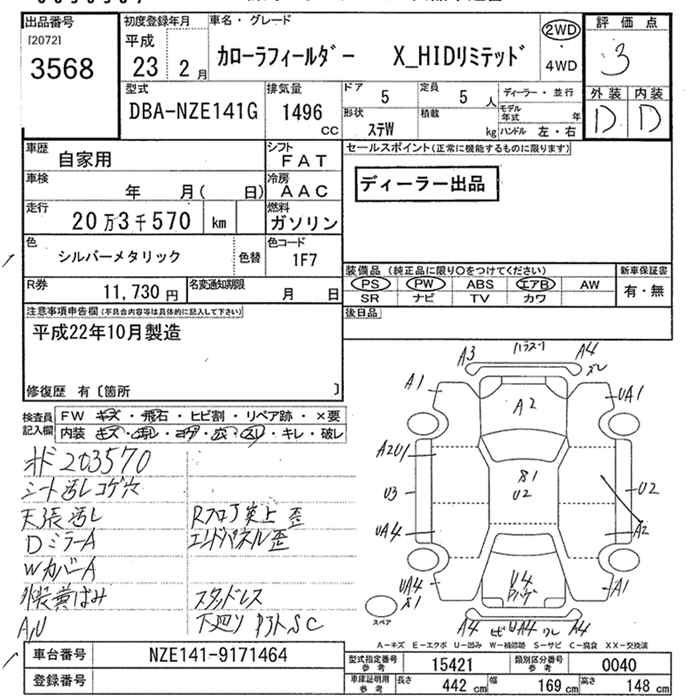 出品番号
[2072]
3568
初度登録年月
平成
23 2月
車名・グレード
カローラフィールダー X_HIDリミテッド
2WD
4WD
評価点
3
外装 内装
D D
型式
DBA-NZE141G
排気量
1496
cc
ドア
5
定員
5 人
形状
ステW
積載
kg
ディーラー・並行
モデル年式 年
ハンドル 左・右
車歴
自家用
シフト
FAT
車検
年 月( 日)
冷房
AAC
走行
20万3千570 km
燃料
ガソリン
色
シルバーメタリック
色替
色コード
1F7
R券
11,730円
名変通知期限
月 日
セールスポイント(正常に機能するものに限ります)
ディーラー出品
装備品 (純正品に限り○をつけてください)
PS PW ABS エアB AW
SR ナビ TV カワ
新車保証書
有・無
後日品
注意事項申告欄(不具合内容等は具体的に記入して下さい)
平成22年10月製造
修復歴 有〔箇所 〕
検査員記入欄
FW キズ・飛石・ヒビ割・リペア跡・×要
内装 キズ・ヨゴレ・コゲ・穴・スレ・キレ・破レ
203570
シート汚レコゲ穴
天張汚レ
Dミラー A
Wカバー A
外装黄ばみ
A,U
Rフロア突上歪
エンドパネル歪
スタッドレス
下廻り サビ SC
A3
A4
A1
UA1
A2
A2U1
U3
U2
U2
UA4
A2
UA4
U4
A1
A4
UA4
A4
スペア
A-キズ E-エクボ U-凹み W-補修跡 S-サビ C-腐食 XX-交換済
車台番号
NZE141-9171464
登録番号
型式指定番号 参考
15421
類別区分番号 参考
0040
車庫証明用 参考
長さ 442 cm
幅 169 cm
高さ 148 cm